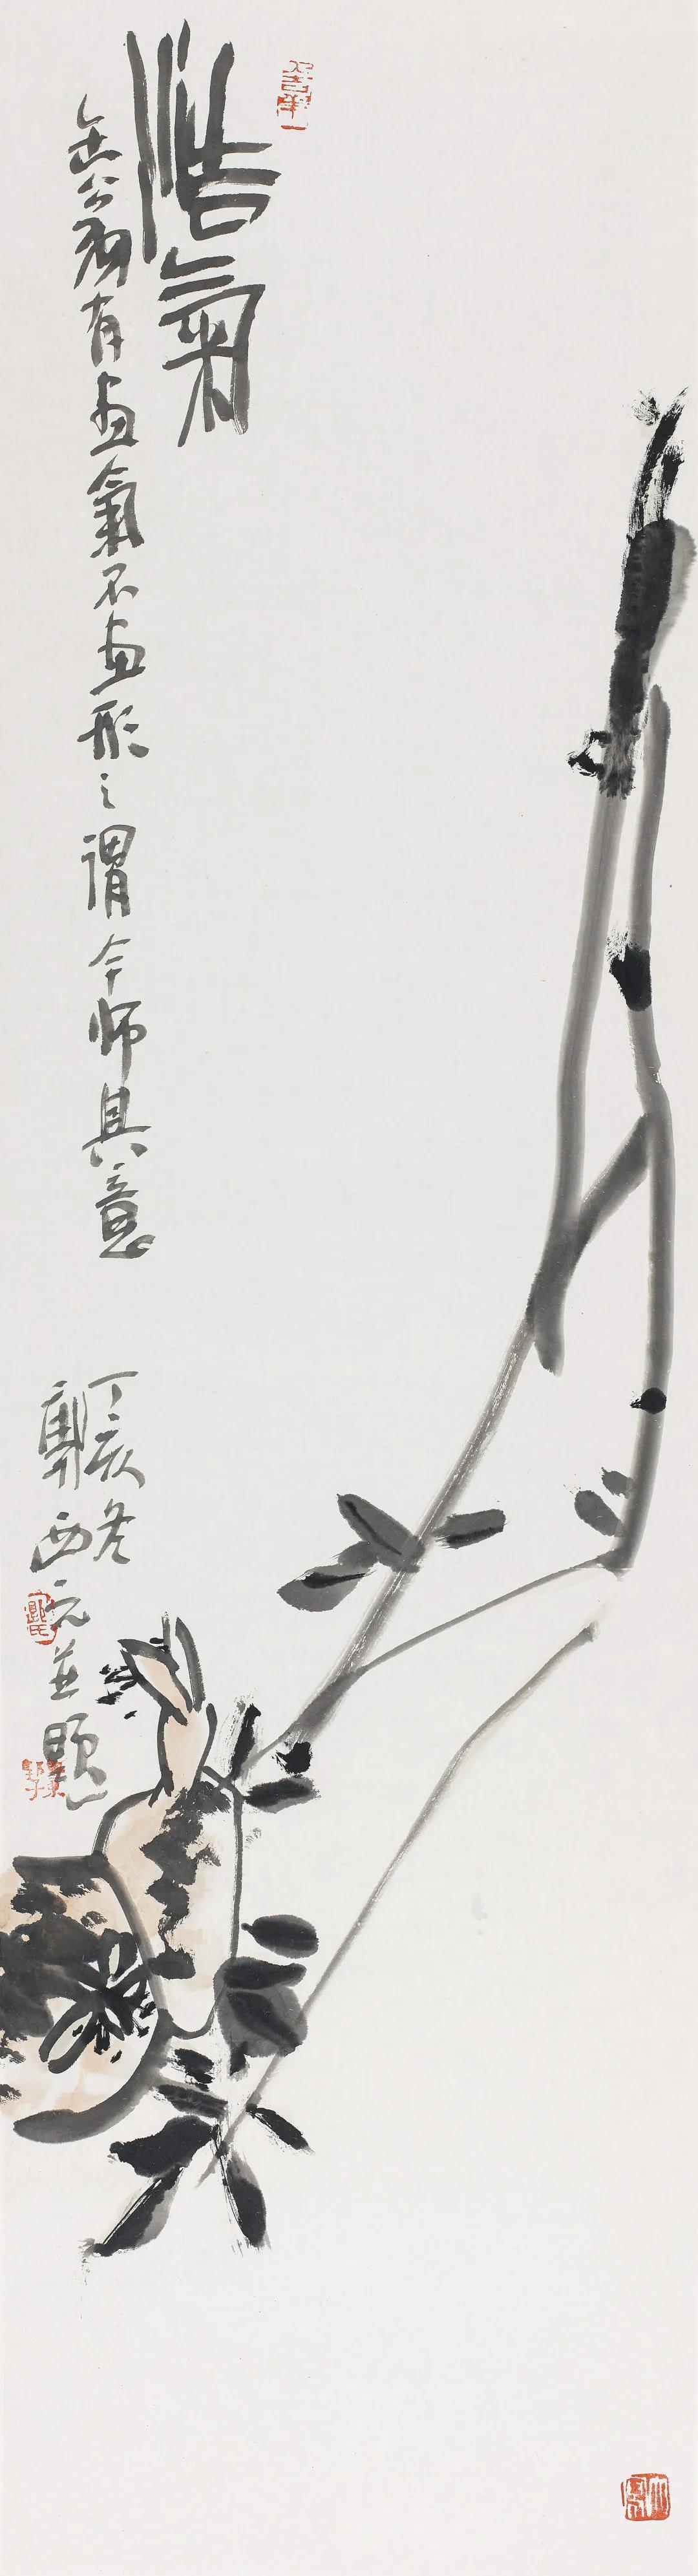 浩氣
缶翁有畫氣不畫形之謂今師其意
丁亥冬
郭西元並題